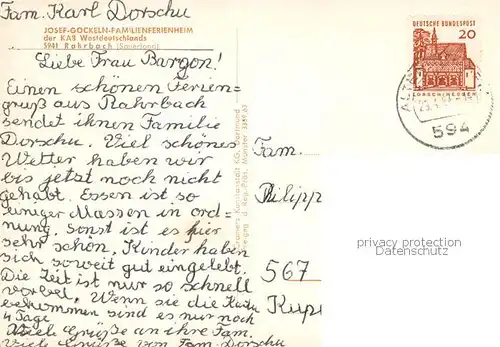 Fam. Karl Dorschu
JOSEF-GOCKELN-FAMILIENFERIENHEIM
der KAB Westdeutschlands
5941 Rahrbach (Sauerland)
Liebe Frau Bargon!
Einen schönen Ferien-
gruß aus Rahrbach
sendet ihnen Familie
Dorschu. Viel schönes
Wetter haben wir
bis jetzt noch nicht
gehabt. Essen ist so
einiger Massen in ord
nung. Sonst ist es hier
sehr schön. Kinder haben
sich soweit gut eingelebt.
Die Zeit ist nur so schnell
vorbei. Wenn sie die Karte
bekommen sind es nur noch
4 Tage
Viele Grüße an ihre Fam.
Viele Grüße von Fam. Dorschu
DEUTSCHE BUNDESPOST
20
LORSCH/HESSEN
594
Fam.
Philipp
567
privacy protection
Datenschutz